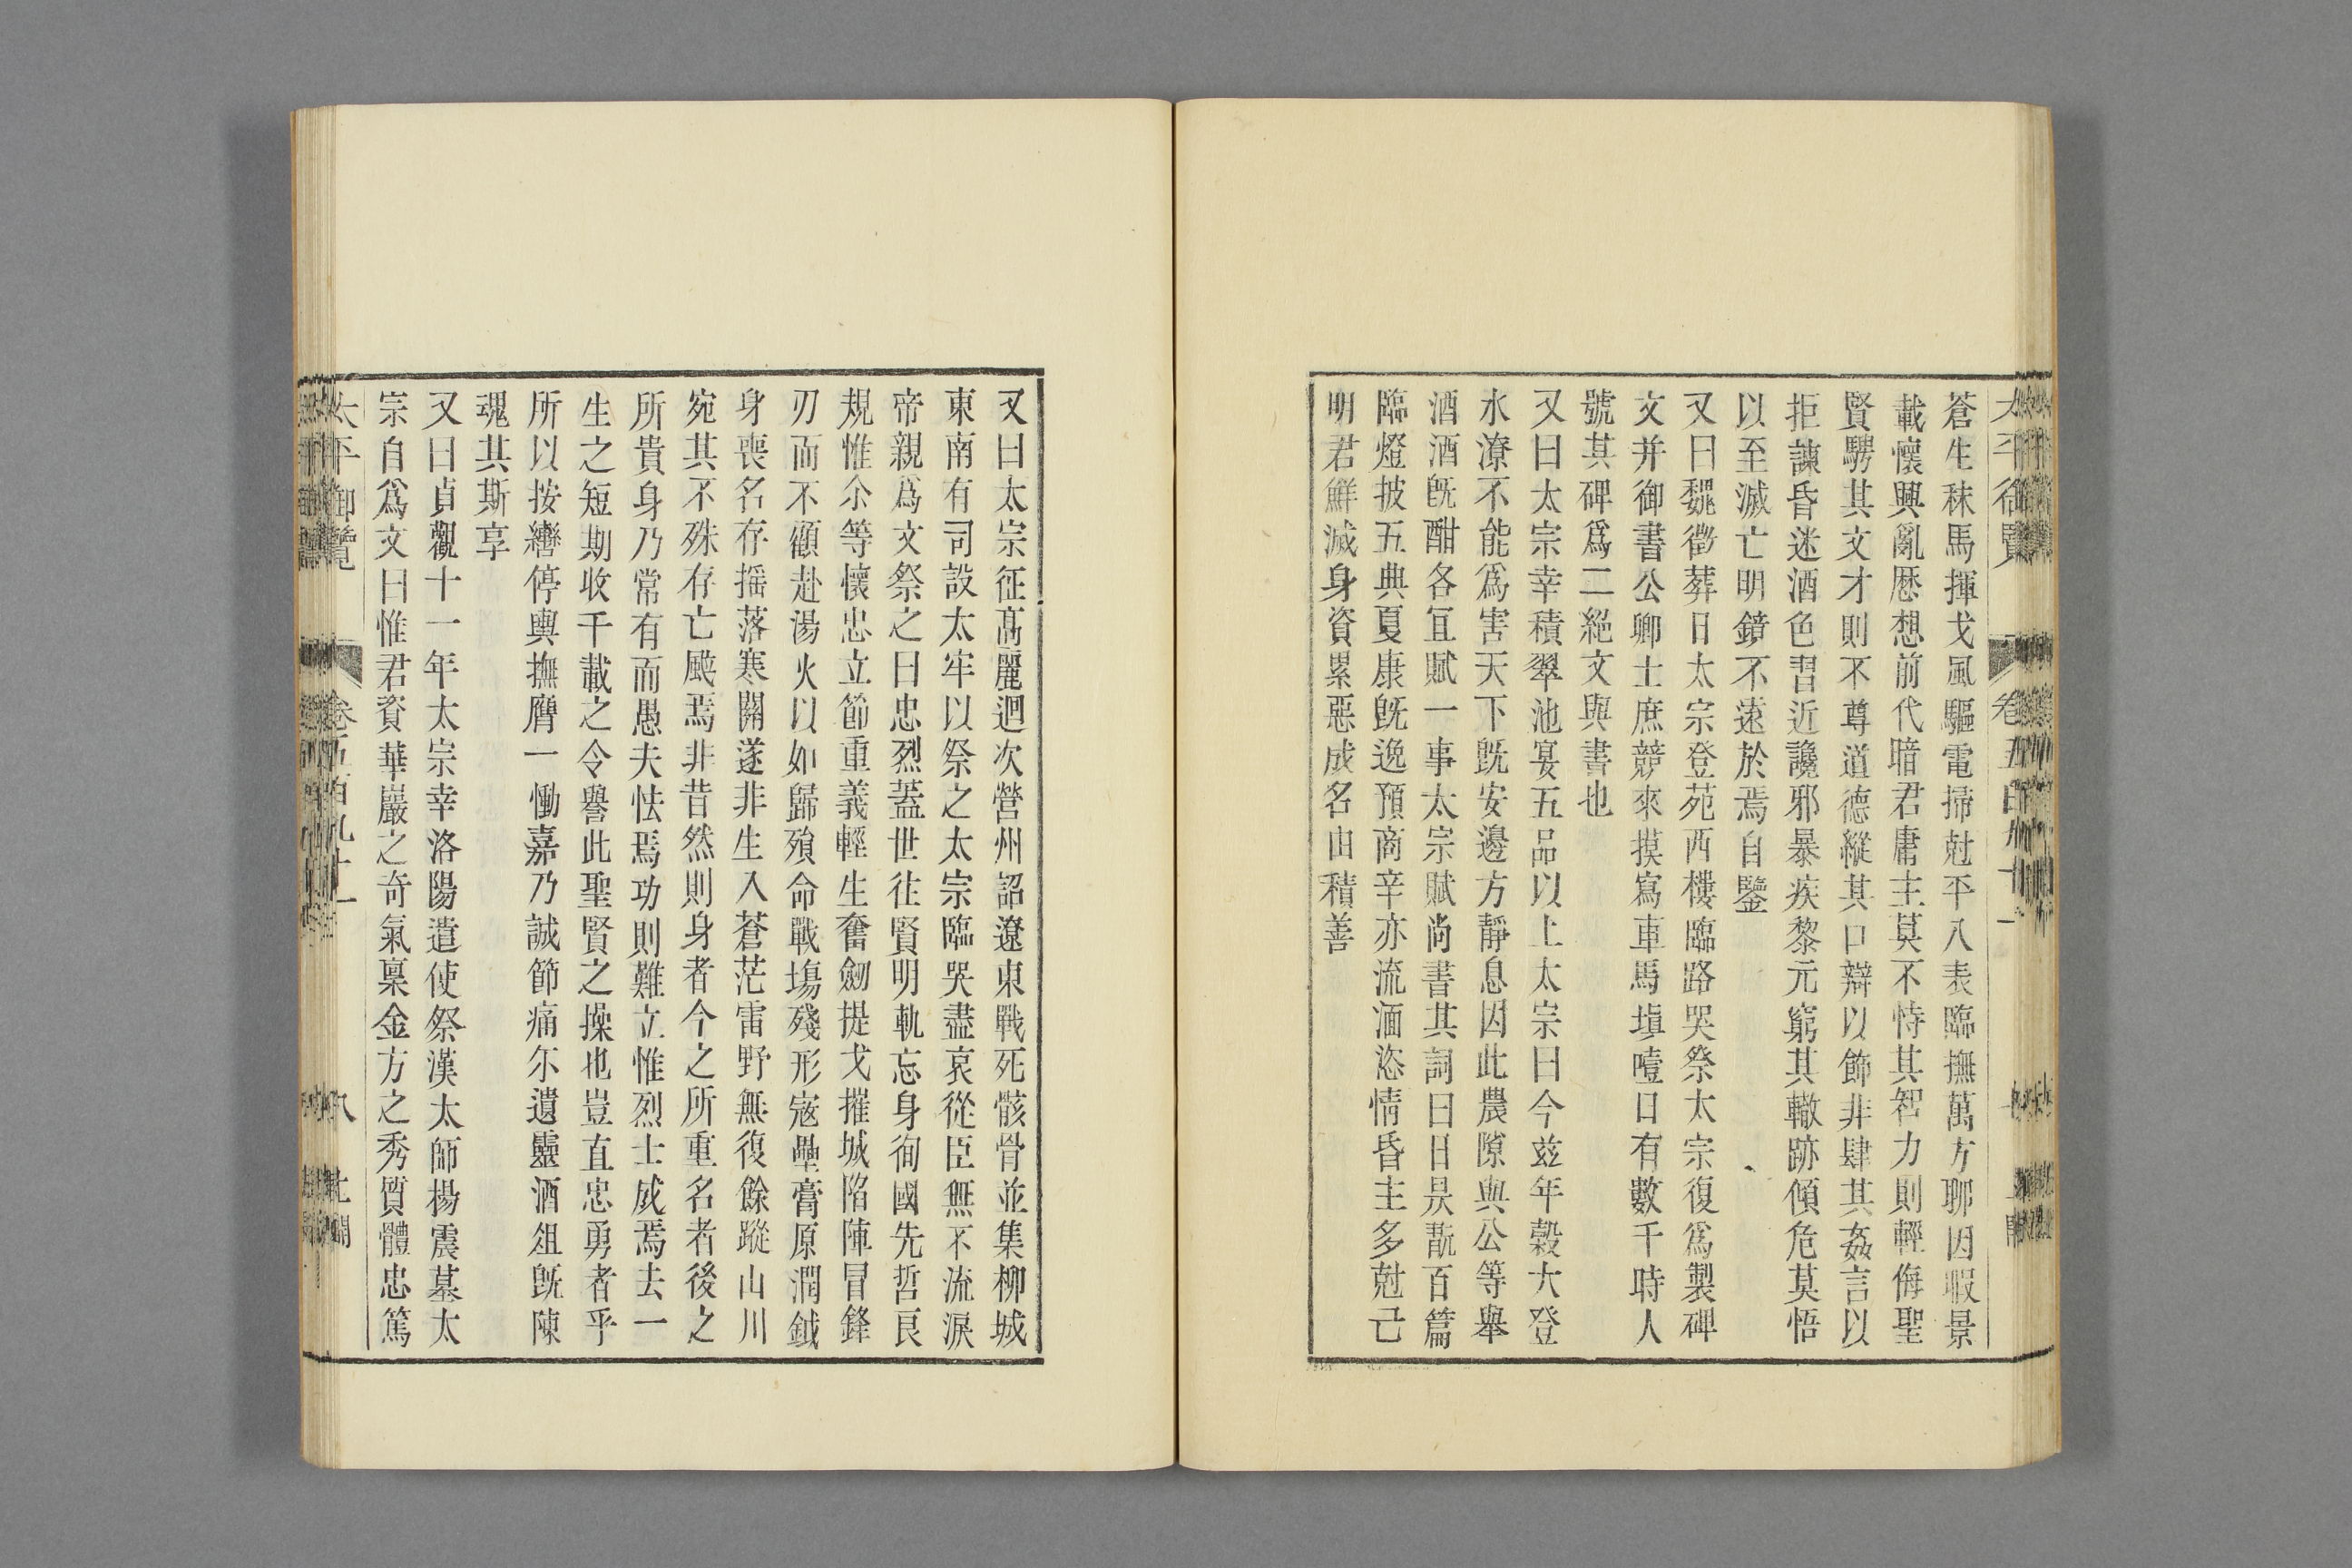 蒼生秣馬揮戈風驅電掃尅平八表臨撫萬方聊因暇景
載懷興亂歷想前代暗君庸主莫不恃其智力則輕侮聖
賢騁其文才則不尊道德縱其口辯以飾非肆其姦言以
拒諫昏迷酒色習近讒邪暴疾黎元窮其轍跡傾危莫悟
以至滅亡明鏡不遠於焉自鑒
又曰魏徵葬日太宗登苑西樓臨路哭祭太宗復爲製碑
文并御書公卿士庶競來摸寫車馬塡噎日有數千時人
號其碑爲二絕文與書也
又曰太宗幸積翠池宴五品以上太宗曰今兹年穀大登
水潦不能爲害天下旣安邊方靜息因此農隙與公等舉
酒酒旣酣各宜賦一事太宗賦尚書其詞曰日昃翫百篇
臨燈披五典夏康旣逸預商辛亦流湎恣情昏主多尅己
明君鮮滅身資累惡成名由積善
又曰太宗征髙麗迴次營州詔遼東戰死骸骨並集柳城
東南有司設太牢以祭之太宗臨哭盡哀從臣無不流淚
帝親爲文祭之曰忠烈蓋世往賢明軌忘身徇國先哲良
規惟尒等懷忠立節重義輕生奮劒提戈摧城陷陣冒鋒
刃而不顧赴湯火以如歸殞命戰場殘形寇壘膏原潤鉞
身喪名存揺落寒關遂非生入蒼茫雷野無復餘蹤山川
宛其不殊存亡颷焉非昔然則身者今之所重名者後之
所貴身乃常有而愚夫怯焉功則難立惟烈士威焉去一
生之短期收千載之令譽此聖賢之操也豈直忠勇者乎
所以按轡停輿撫膺一慟嘉乃誠節痛尓遺靈酒俎旣陳
魂其斯享
又曰貞觀十一年太宗幸洛陽遣使祭漢太師楊震墓太
宗自爲文曰惟君資華巖之奇氣稟金方之秀質體忠篤
太平御覽 卷五百九十一 八